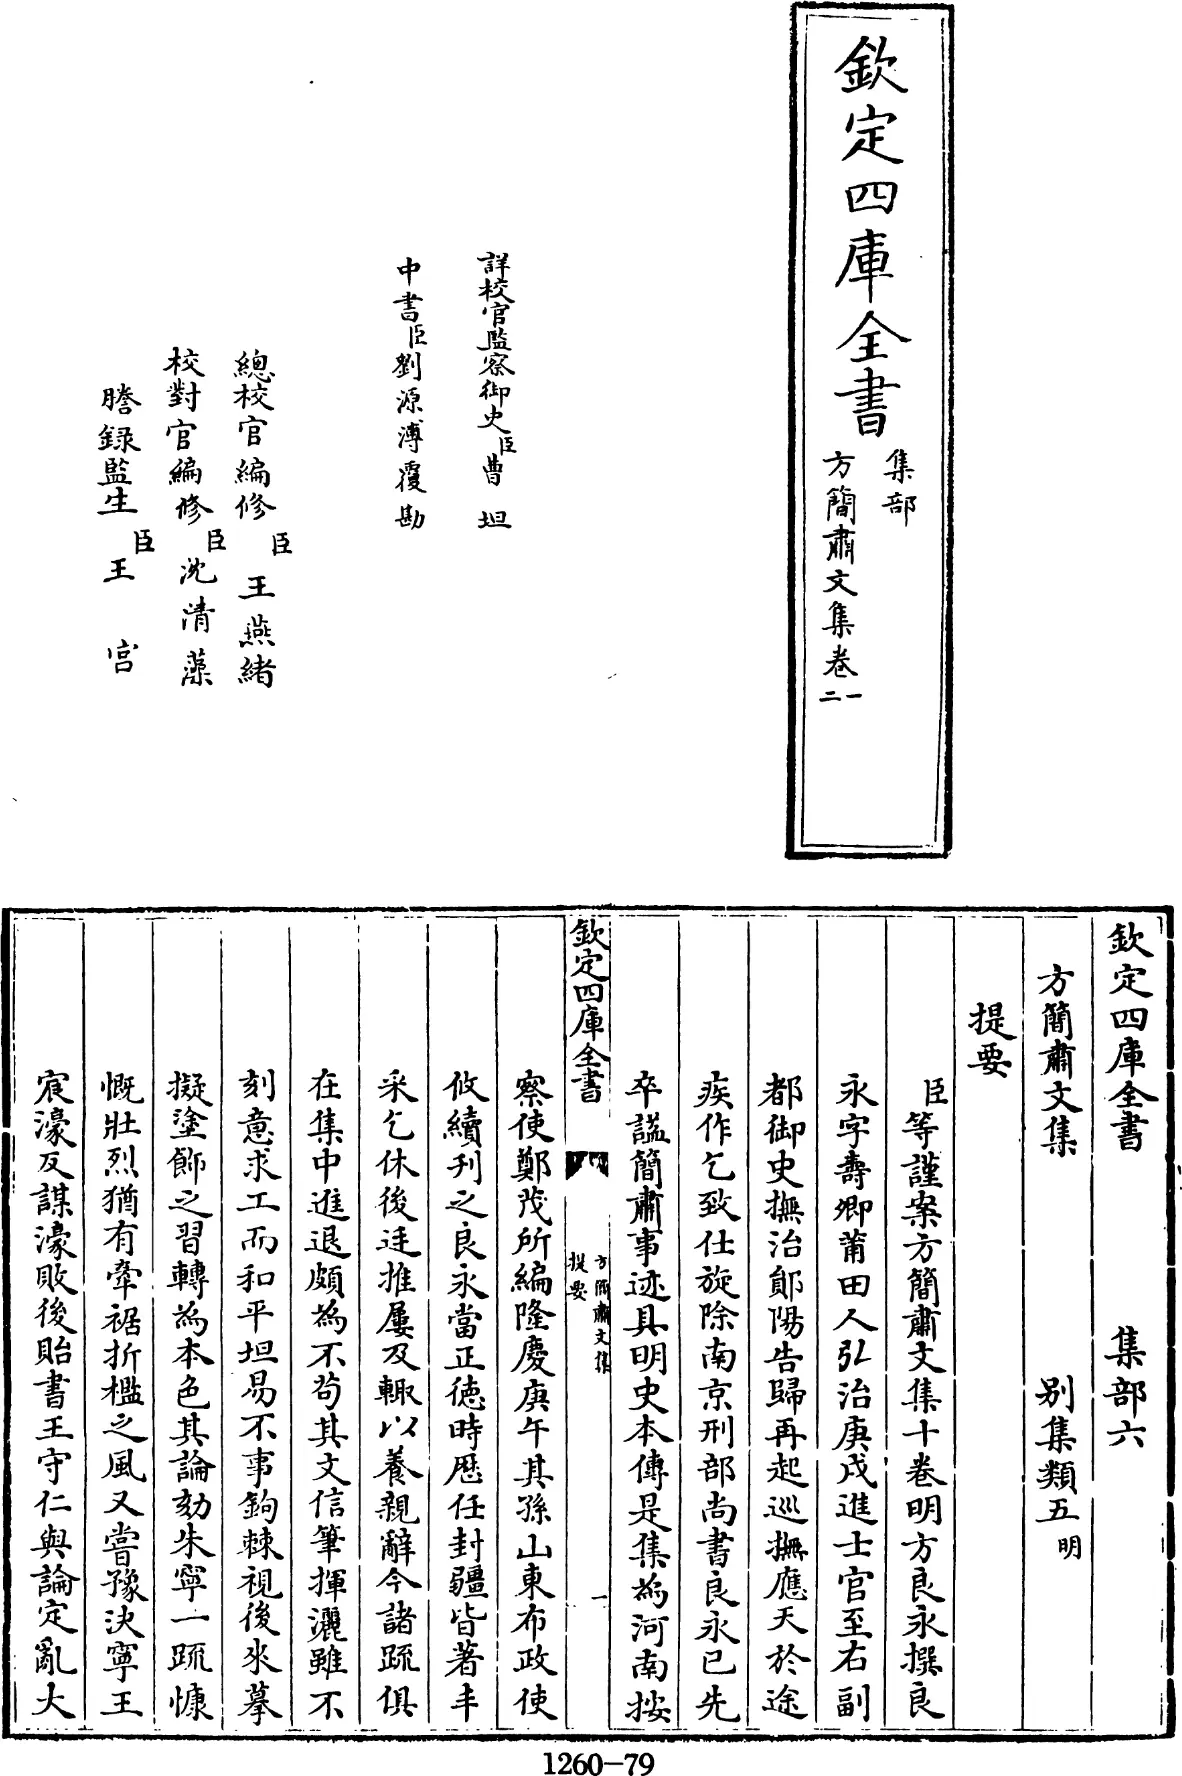 欽定四庫全書
集部
方簡肅文集卷一
二
詳校官監察御史臣曹坦
中書臣劉源溥覆勘
總校官編修臣王燕緒
校對官編修臣沈清藻
謄録監生臣王宫
欽定四庫全書 集部六
方簡肅文集 别集類五明
提要
臣等謹案方簡肅文集十卷明方良永撰良
永字壽卿莆田人弘治庚戌進士官至右副
都御史撫治鄖陽告歸再起巡撫應天於途
疾作乞致仕旋除南京刑部尚書良永已先
卒諡簡肅事迹具明史本傳是集為河南按
欽定四庫全書
方簡肅文集
提要
一
察使鄭茂所編隆慶庚午其孫山東布政使
攸續刋之良永當正徳時歴任封疆皆著丰
采乞休後廷推屢及輙以養親辭今諸疏俱
在集中進退頗為不茍其文信筆揮灑雖不
刻意求工而和平坦易不事鉤棘視後來摹
擬塗飾之習轉為本色其論劾朱寧一疏慷
慨壯烈猶有牽裾折檻之風又嘗豫決寧王
宸濠反謀濠敗後貽書王守仁與論定亂大
1260-79